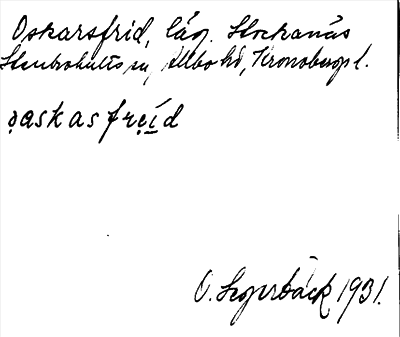 Oskarsfrid, läg. Stockanäs
Stenbrohults sn, Allbo hd, Kronobergs l.
ọaskasfrẹid
O. Segerbäck 1931.